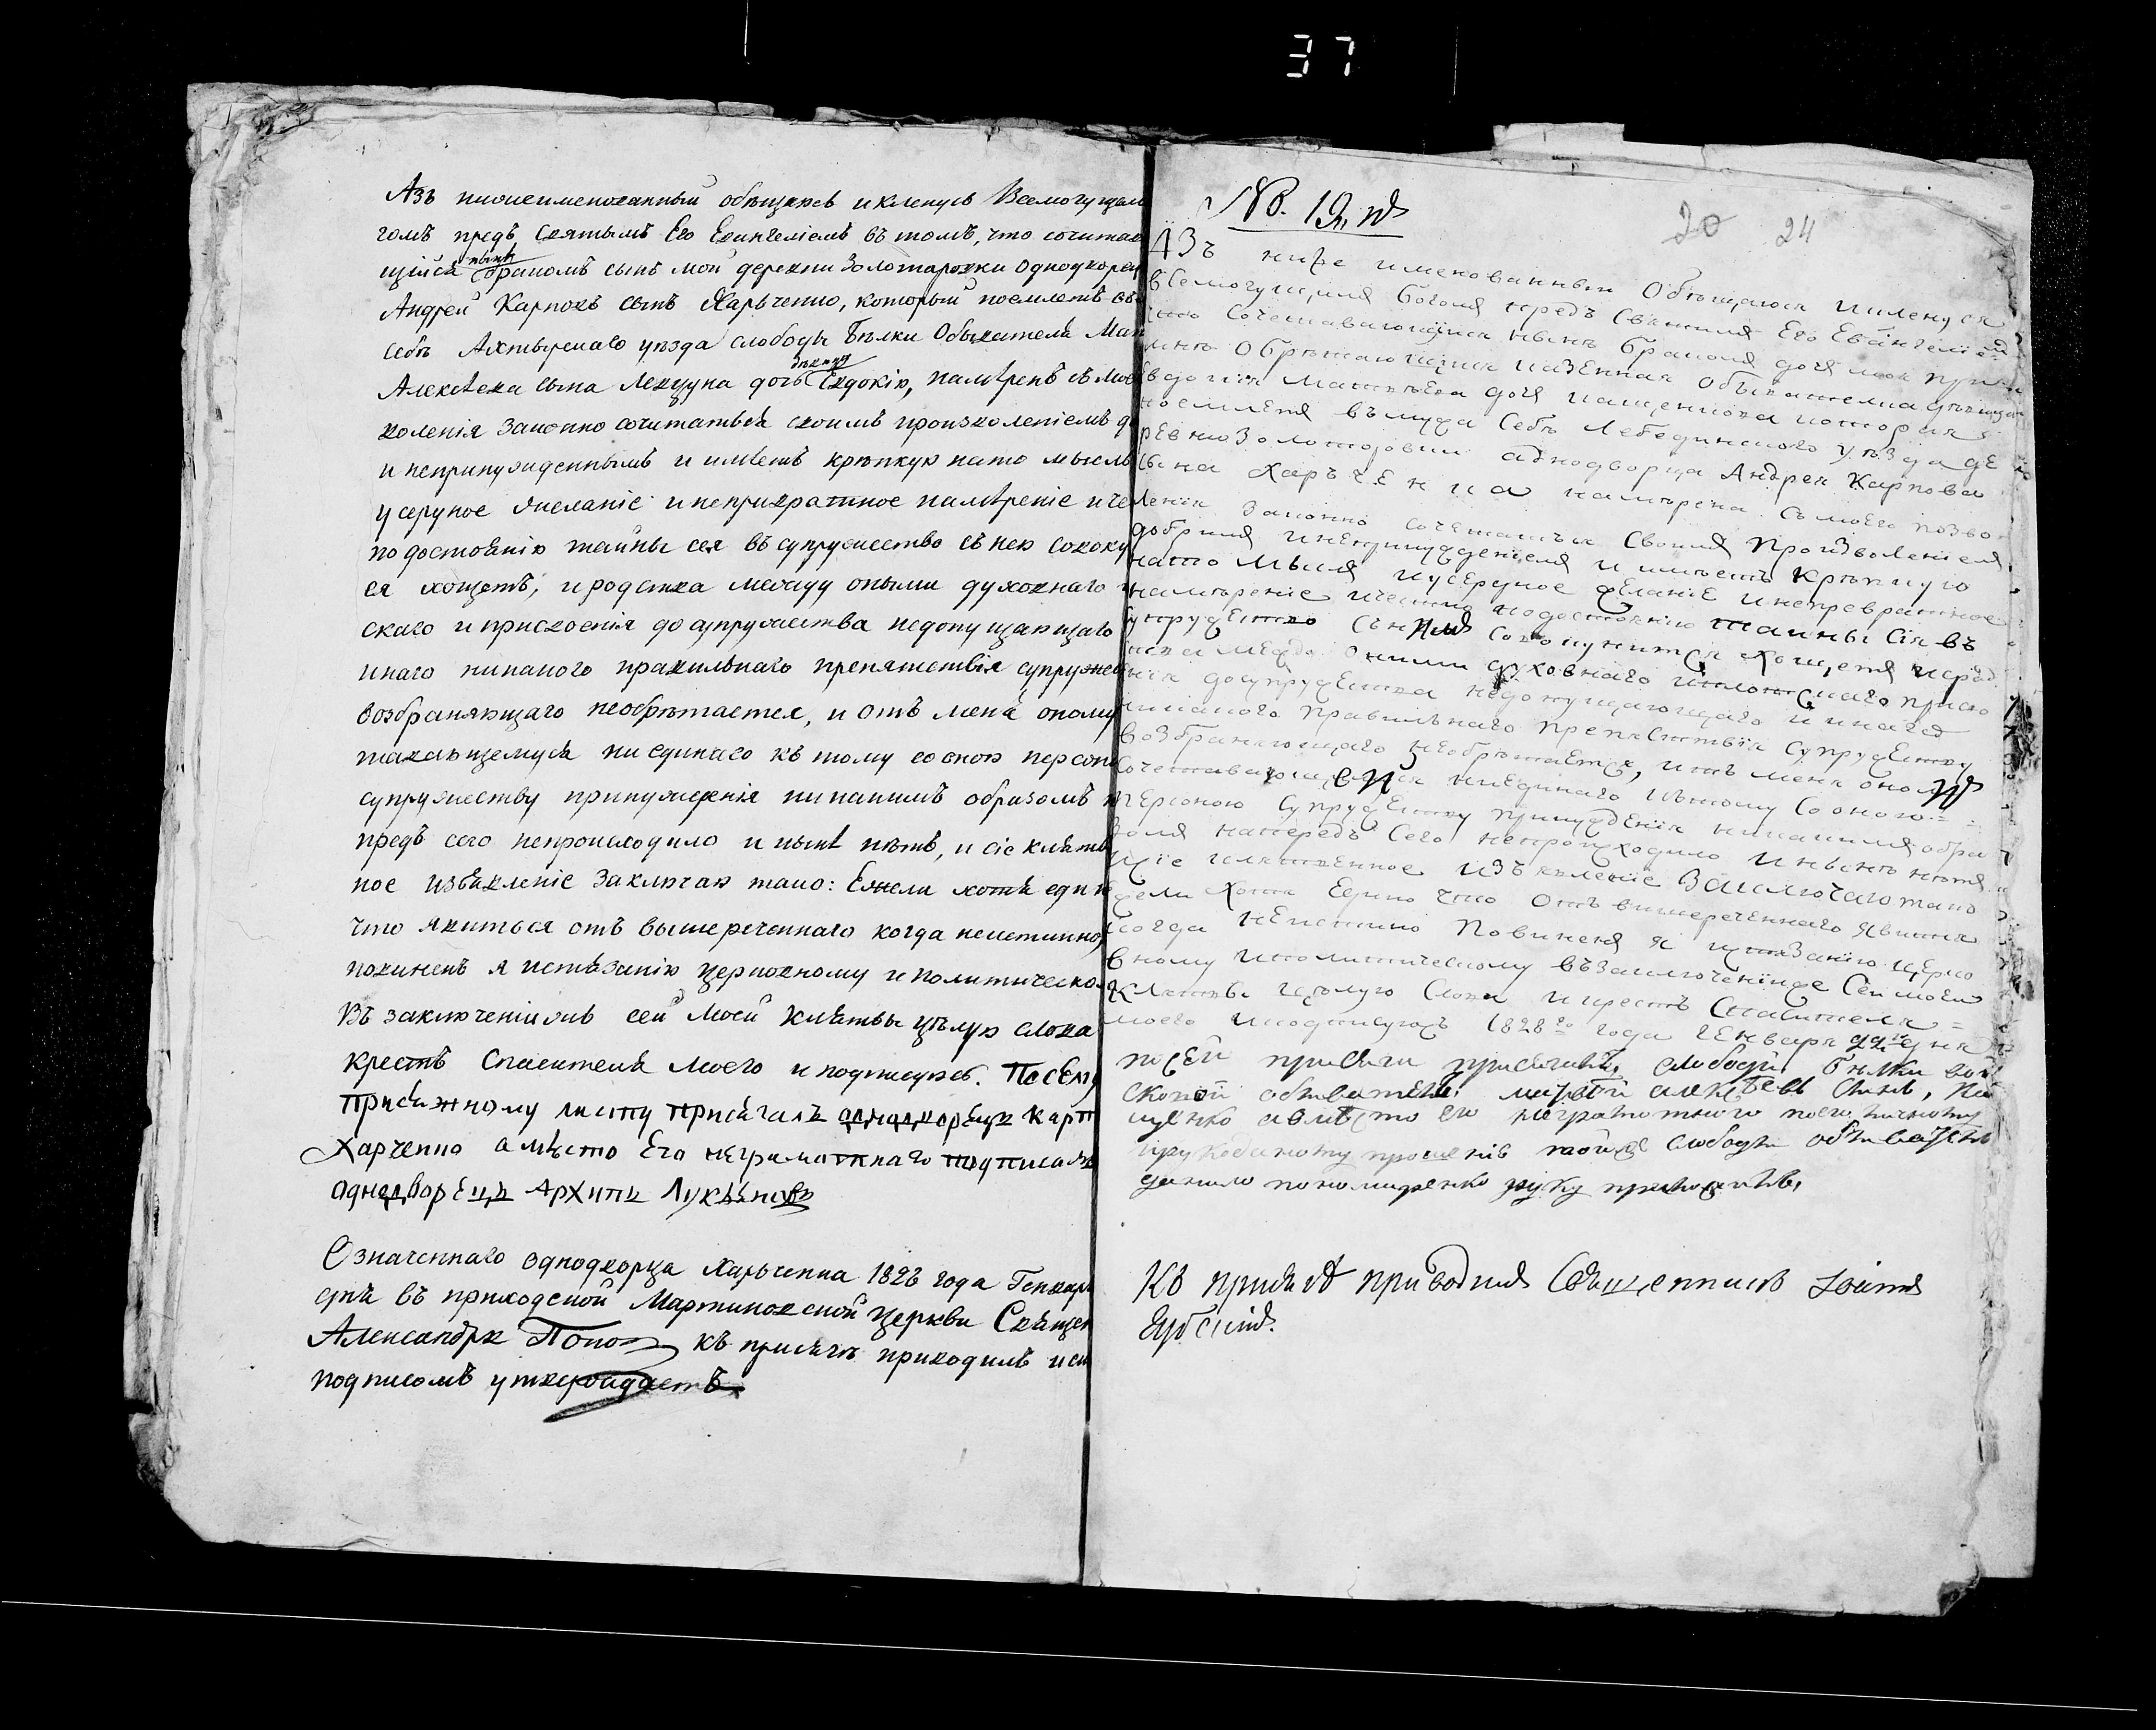 37
Азъ нижеименованный обѣщаюсь и кленусь Всемогущым
гомъ предъ святымъ Его Евангеліемъ въ томъ, что сочитаю
щійся нынѣ бракомъ сынъ мой деревни Золотаровки Однодворец
Андрей Карповъ сынъ Харьченко, который поемлетъ въ
себѣ Ахтырскаго уѣзда слободы Бѣлки Обывателя Мат
Алексѣева сына Лекцуна дочь дѣвицу Евдокію, намѣренъ съ мое
воленія законно сочитаться своимъ произволеніемъ д
и непринужденнымъ и имѣетъ крѣпкую нато мысль
усердное желаніе и непривратное намѣреніе и че
по достоянію тайны сея въ супружество съ нею совоку
ся хощетъ, и родства между оными духовнаго и
скаго и присвоенія до супружества недопущающаго
инаго никакого правильнаго препятствія супружес
возбраняющаго необрѣтается, и отъ мена оному
тавающемуся ни единаго къ тому со оною персон
супружеству принужденія никакимъ образомъ н
предъ сего непроисходило и нынѣ нѣтъ, и сіе клятв
ное изъявленіе заключаю тако: Ежели хотя едино
что явиться отъ вышереченнаго когда неистинно,
повиненъ я истязанію церковному и политическо
Въ заключеніи жъ сей Моей клятвы цѣлую слова
крестъ Спасителя Моего и подписуюсь. Посему
присяжному листу присягалъ однодворецъ Карп
Харченко а мѣсто Его неграмотнаго подписалъ
однодворецъ Архипъ Лукьяновъ
Означеннаго однодворца Харьченка 1828 года Генваря
дня въ приходской Мартиновской церкви Священ
Александръ Попов къ присягѣ приводилъ и си
подписомъ утверждаетъ.
№. 19й.
20 24
Азъ ниже именованный Обѣщаюся и кленуся
всемогущимъ Богомъ предъ Святымъ Его Евангеліем
что Сочетавающаяся нынѣ бракомъ дочь моя при
мнѣ Обрѣтающаяся казенная Обывателка дѣвица
Евдокія Матвѣева дочь которая
поемлетъ въ мужа Себѣ Лебединского уѣзда де
ревни Золотаровки аднодворца Андрея Карпова
сына Харъченка намѣрена съ моего позво
ленія законно Сочетатъся Своимъ Произволеніемъ
добримъ и непринужденіемъ и имѣетъ крѣпкую
нато мысль и усердное желаніе и непревратное
намѣреніе и честно подостоянію таины Сія въ
супружество Съ нимъ совокупится хощетъ и род
ства между оними духовнаго и плотскаго присво
енія до супружества недопущающаго и инаго
никакого правильнаго препятствія супружеству
возбраняющаго необрѣтается, и отъ меня оной
сочетавающейся ниединаго къ тому со оною =
персоною супружеству принужденія никакимъ обра
зомъ напередъ Сего непроисходило и нынѣ нѣтъ
и сіе клятвенное изъявленіе Заключаю тако
Ежели Хотя Едино что отъ вишереченнаго явится
когда неистино Повиненъ я истязанію церко
вному и политическому въ заключеніи же Сеи моеи
клятвы цѣлую Слова и крестъ Спасителя =
моего и подписуюсь 1828го года Генваря 22 дня
по сей присяги присягавъ, слободи Бѣлки вой
сковой обыватель матвѣй алексѣевъ синъ,
а вмѣсто его неграмотного по его личному
и рукоданому прошенію тойже слободи обыватель
данило пономаренко руку приложилъ,
Къ присягѣ приводилъ Священникъ Іоаннъ